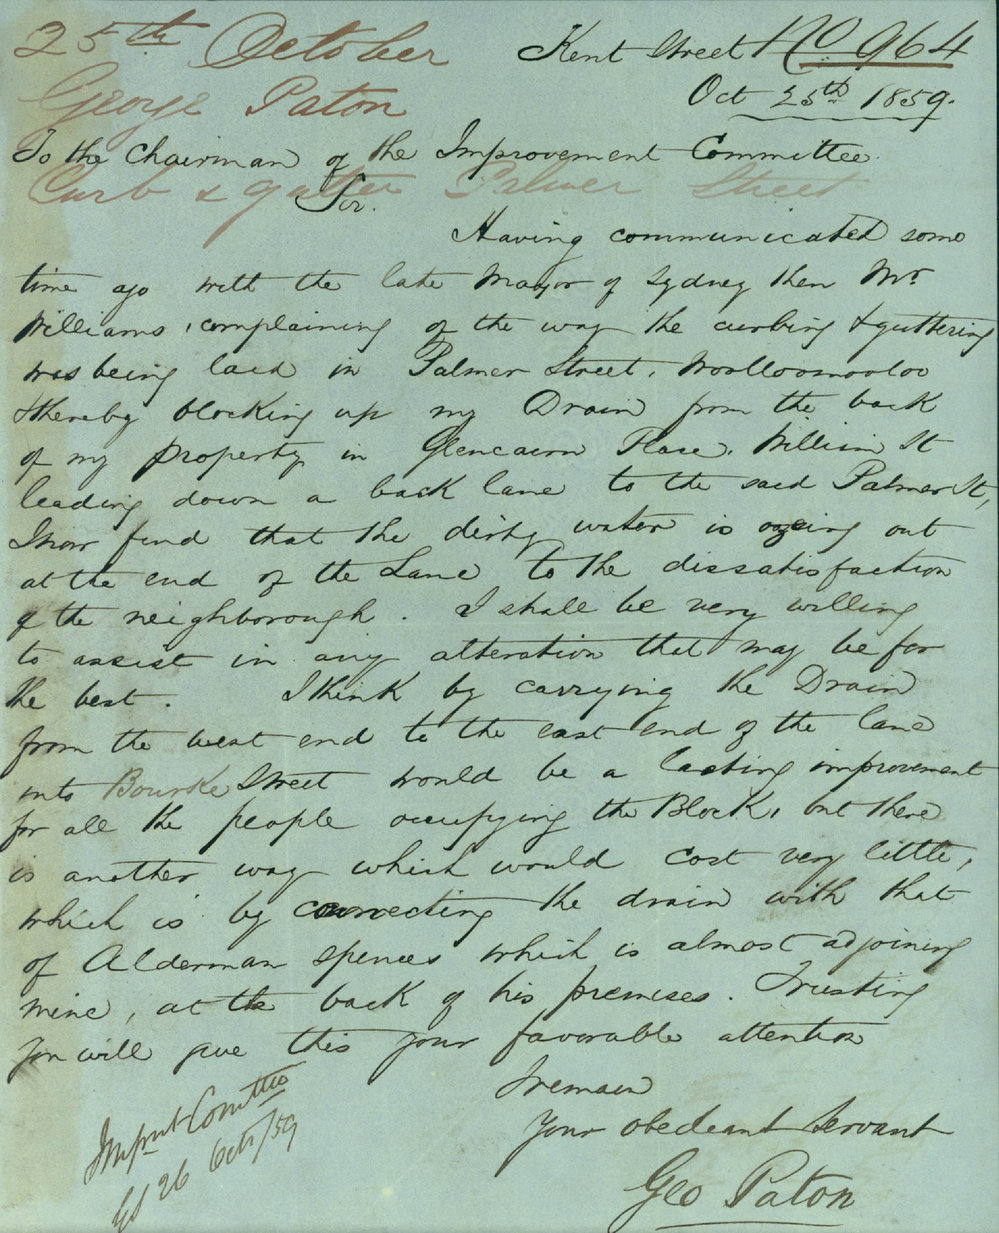 25th October
George Paton
Curb & gutter Palmer Street
Kent Street No 964
Oct 25th 1859.
To the Chairman of the Improvement Committee.
Sir.
Having communicated some
time ago with the late Mayor of Sydney then Mr
Williams, complaining of the way the curbing & guttering
was being laid in Palmer Street, Woolloomooloo
thereby blocking up my Drain from the back
of my property in Glencairn Place, William St
leading down a back lane to the said Palmer St,
I now find that the dirty water is oozeing out
at the end of the Lane to the dissatisfaction
of the neighborough. I shall be very willing
to assist in any alteration that may be for
the best. I think by carrying the Drain
from the west end to the east end of the lane
into Bourke Street would be a lasting improvement
for all the people occupying the Block, but there
is another way which would cost very little,
which is by connecting the drain with that
of Alderman Spences which is almost adjoining
mine, at the back of his premises. Trusting
you will give this your favorable attention
I remain
Your obedeant Servant
Geo Paton
Impt Comttee
26 Octr/59